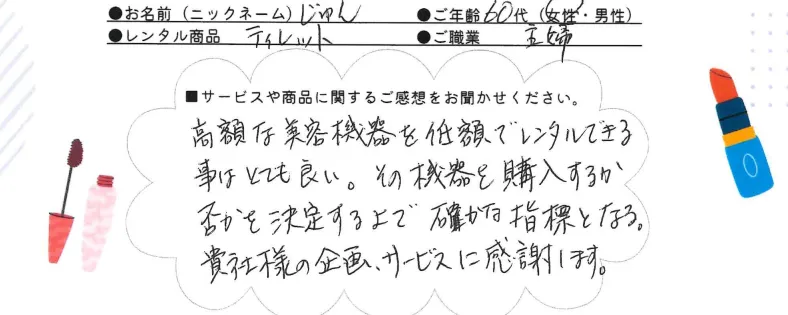 ●お名前（ニックネーム）じゅん ●ご年齢 60代（女性・男性）
●レンタル商品 ティレット ●ご職業 主婦
■サービスや商品に関するご感想をお聞かせください。
高額な美容機器を低額でレンタルできる
事はとても良い。その機器を購入するか
否かを決定する上で確かな指標となる。
貴社様の企画、サービスに感謝します。